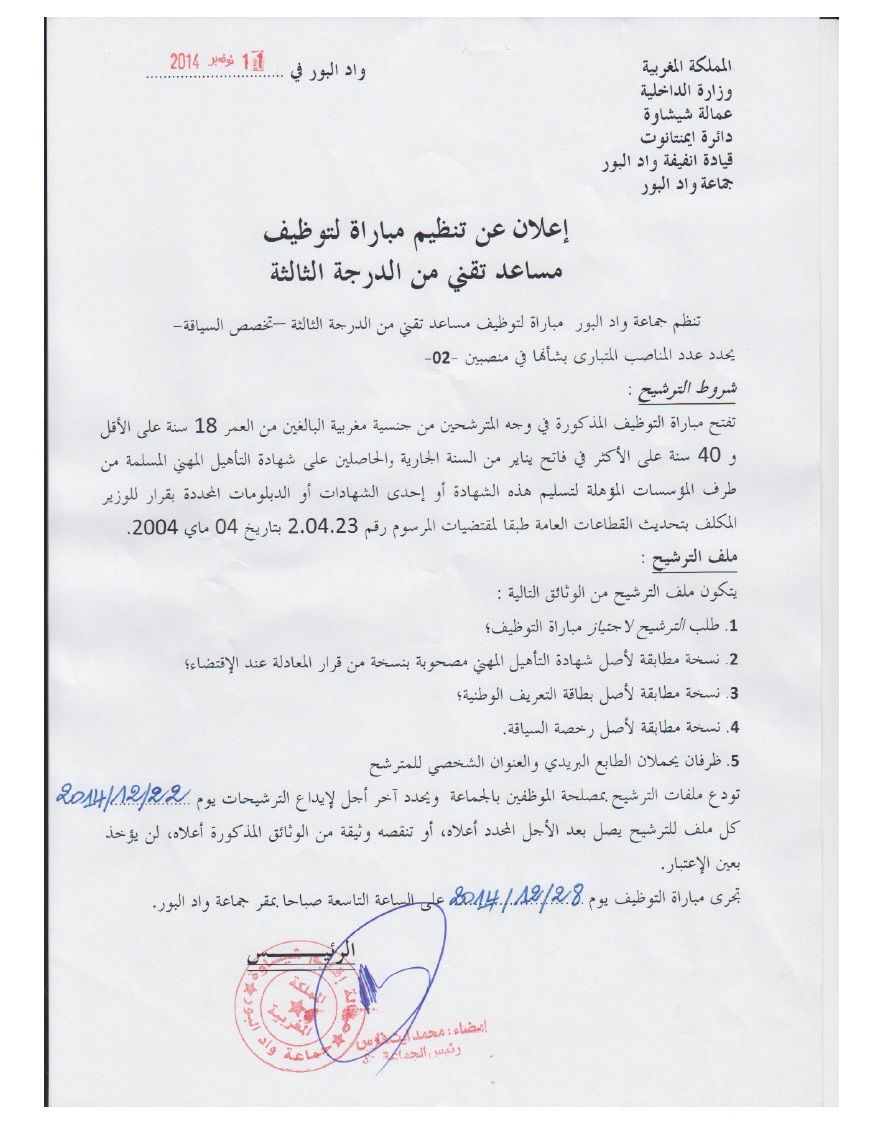 المملكة المغربية
وزارة الداخلية
عمالة شيشاوة
دائرة ايمنتانوت
قيادة انفيفة واد البور
جماعة واد البور
واد البور في 11 نونبر 2014
إعلان عن تنظيم مباراة لتوظيف
مساعد تقني من الدرجة الثالثة
تنظم جماعة واد البور مباراة لتوظيف مساعد تقني من الدرجة الثالثة –تخصص السياقة-
يحدد عدد المناصب المتبارى بشأنها في منصبين -02-
شروط الترشيح :
تفتح مباراة التوظيف المذكورة في وجه المترشحين من جنسية مغربية البالغين من العمر 18 سنة على الأقل
و 40 سنة على الأكثر في فاتح يناير من السنة الجارية والحاصلين على شهادة التأهيل المهني المسلمة من
طرف المؤسسات المؤهلة لتسليم هذه الشهادة أو إحدى الشهادات أو الدبلومات المحددة بقرار للوزير
المكلف بتحديث القطاعات العامة طبقا لمقتضيات المرسوم رقم 2.04.23 بتاريخ 04 ماي 2004.
ملف الترشيح :
يتكون ملف الترشيح من الوثائق التالية :
1. طلب الترشيح لاجتياز مباراة التوظيف؛
2. نسخة مطابقة لأصل شهادة التأهيل المهني مصحوبة بنسخة من قرار المعادلة عند الإقتضاء؛
3. نسخة مطابقة لأصل بطاقة التعريف الوطنية؛
4. نسخة مطابقة لأصل رخصة السياقة.
5. ظرفان يحملان الطابع البريدي والعنوان الشخصي للمترشح
تودع ملفات الترشيح بمصلحة الموظفين بالجماعة ويحدد آخر أجل لإيداع الترشيحات يوم 2014/12/22
كل ملف للترشيح يصل بعد الأجل المحدد أعلاه، أو تنقصه وثيقة من الوثائق المذكورة أعلاه، لن يؤخذ
بعين الإعتبار.
تجرى مباراة التوظيف يوم 2014/12/28 على الساعة التاسعة صباحا بمقر جماعة واد البور.
الرئيـــــــس
المملكة
المغربية
جماعة واد البور
إمضاء : محمد ايت
رئيس الجماعة